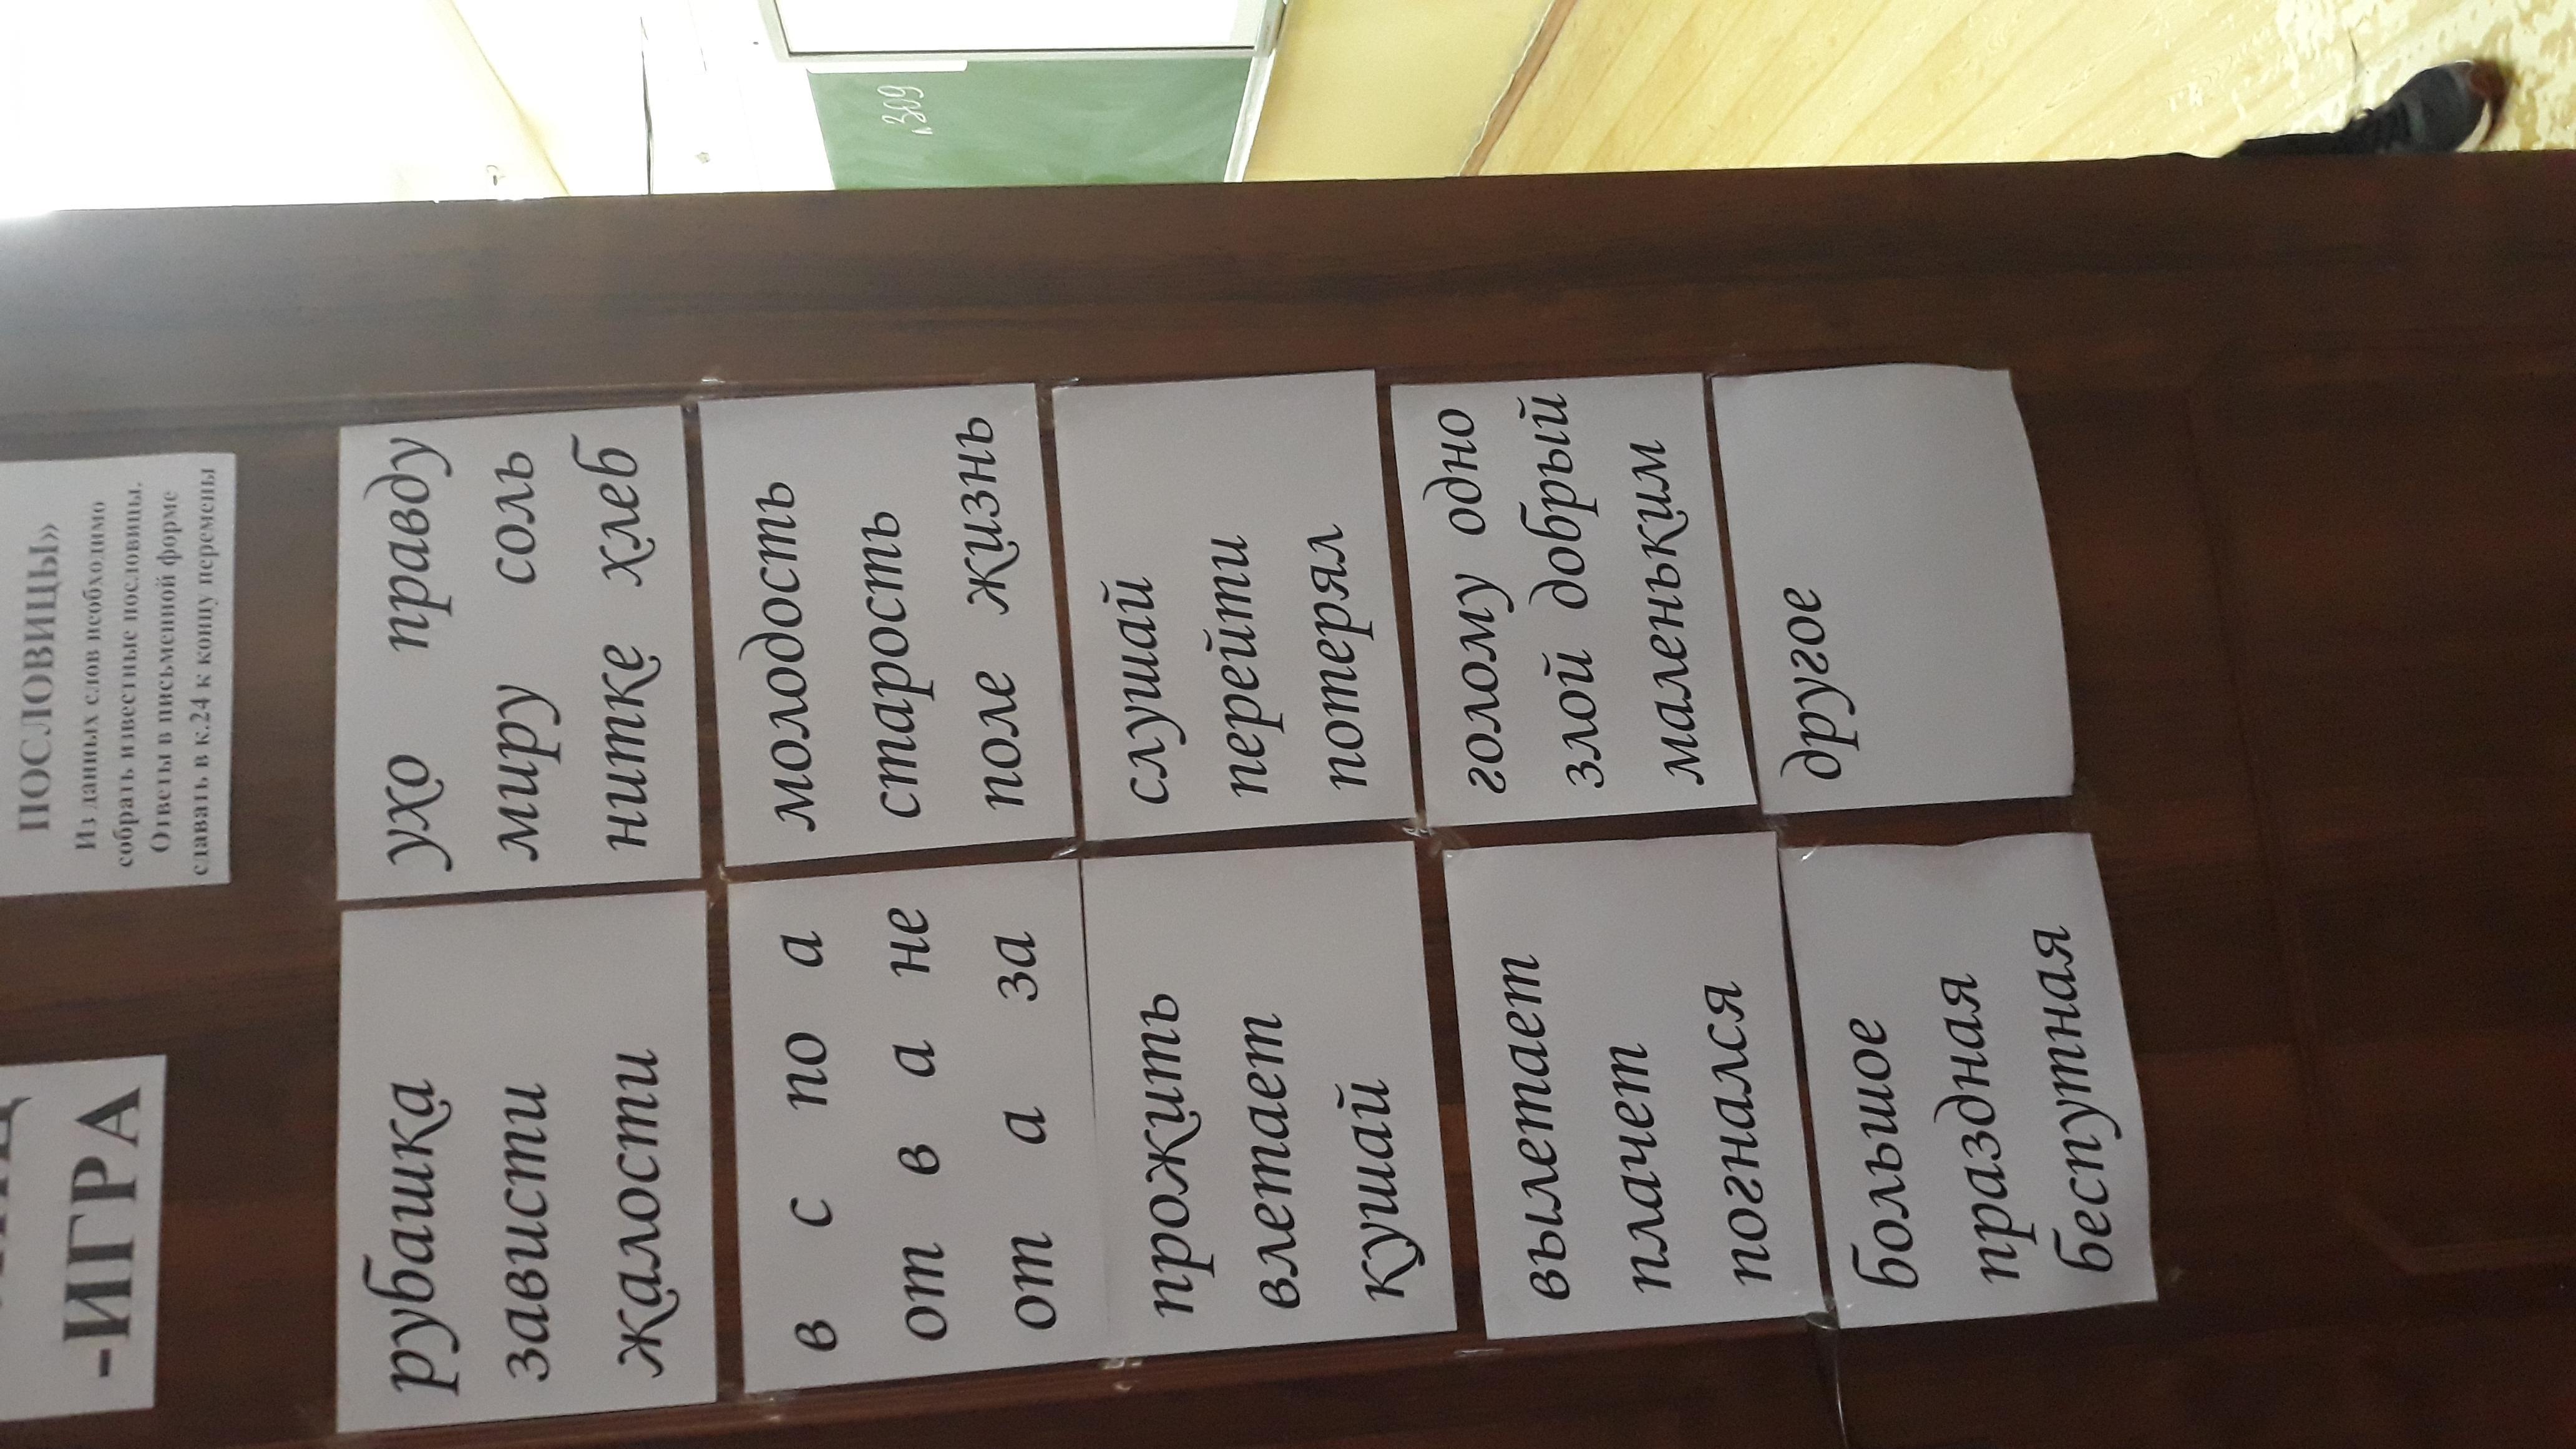 -ИГРА
ПОСЛОВИЦЫ»
Из данных слов необходимо
собрать известные пословицы.
Ответы в письменной форме
сдавать в к.24 к концу перемены
рубашка
зависти
жалости
ухо правду
миру соль
нитке хлеб
в с по а
от в а не
от а за
молодость
старость
поле жизнь
прожить
влетает
кушай
слушай
перейти
потерял
вылетает
плачет
погнался
голому одно
злой добрый
маленьким
большое
праздная
беспутная
другое
к.309